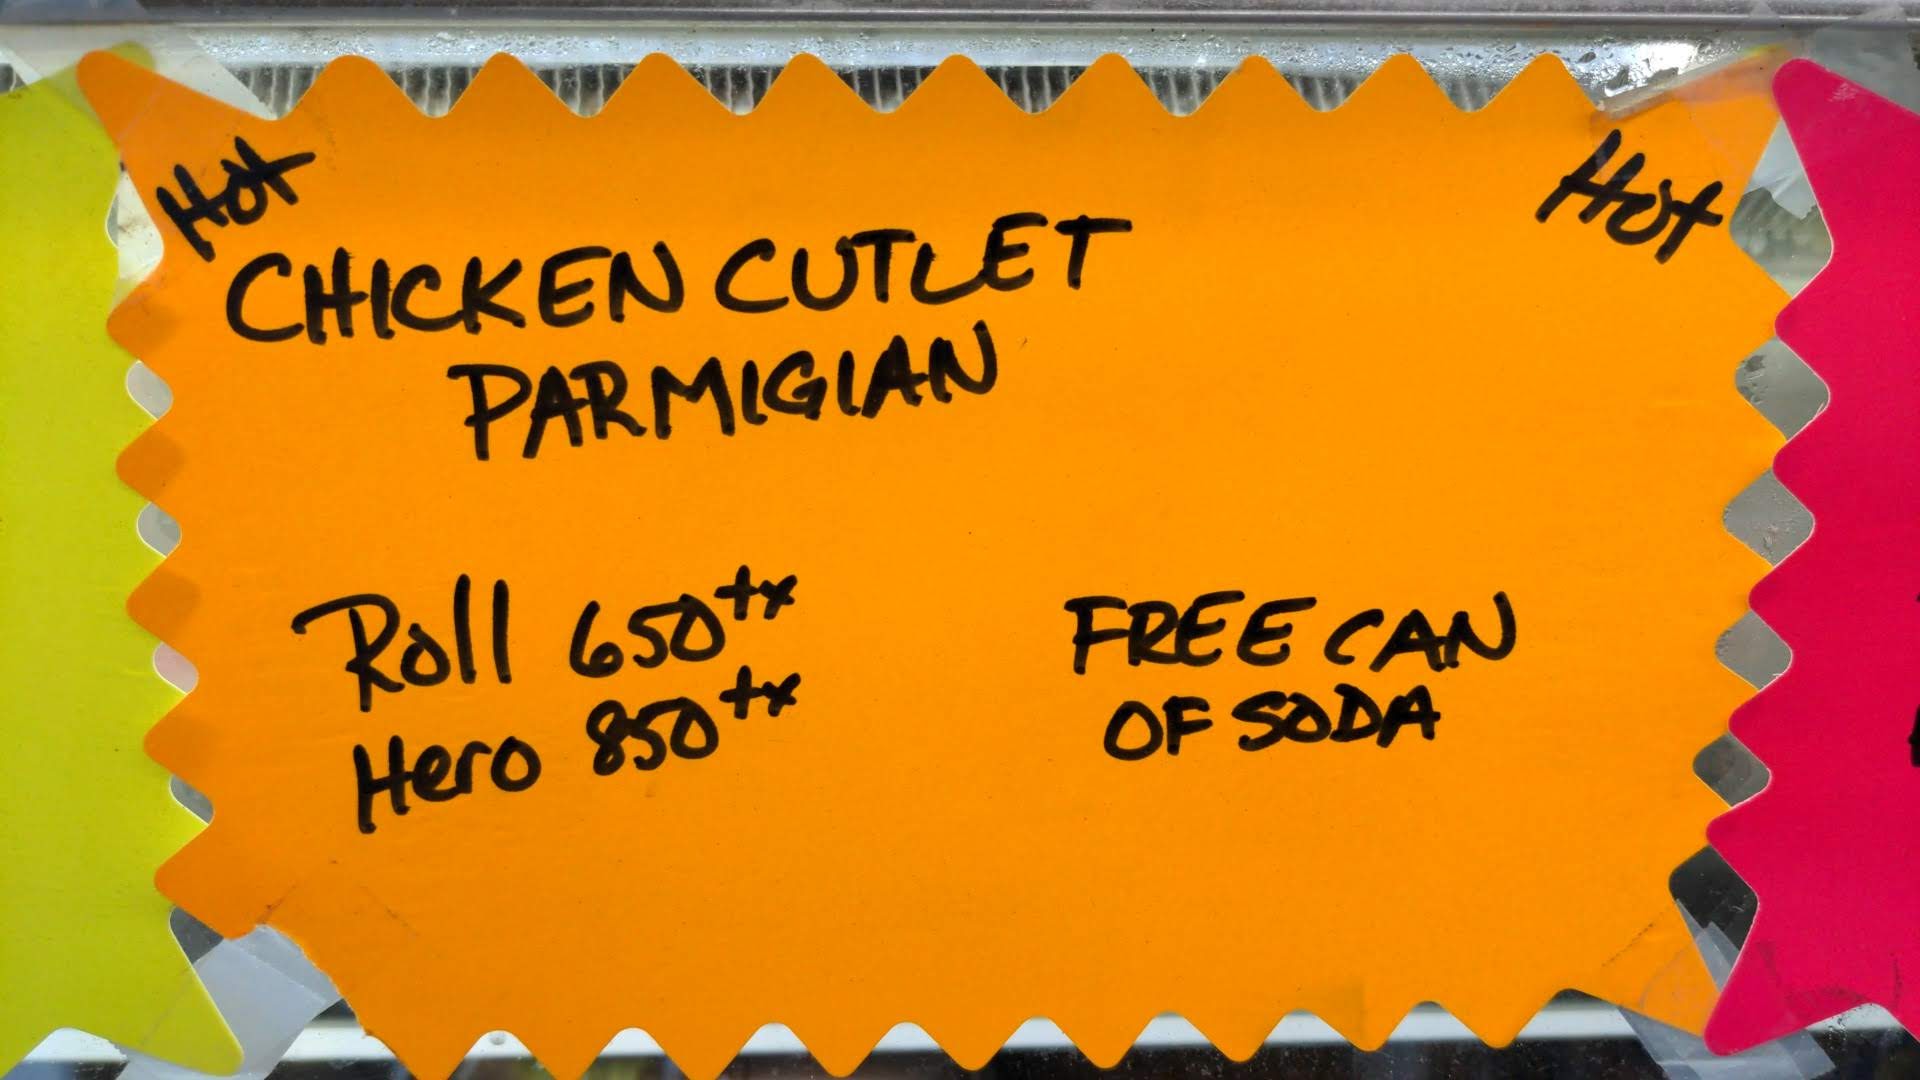 Hot
Hot
CHICKEN CUTLET
PARMIGIAN
Roll 650+tx
Hero 850+tx
FREE CAN
OF SODA